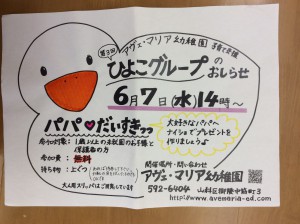 アヴェ・マリア幼稚園 子育て支援
第3回
ひよこグループの
おしらせ
6月7日(水)14時〜
パパ♥だいすきっっ
大好きなパパへ
ナイショでプレゼントを
作りましょう♪
参加対象:1歳以上の未就園のお子様と
保護者の方
参加費:無料
持ち物:上ぐつ
大人用スリッパはご用意しています
開催場所・問い合わせ
アヴェ・マリア幼稚園
592-6404 山科区御陵中筋町3
http://www.avemaria-ed.com/